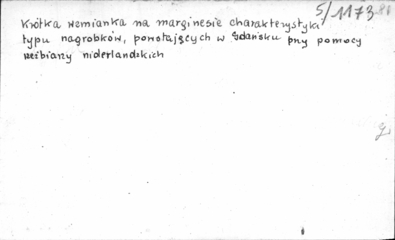 5/1173 81
Krótka wzmianka na marginesie charakterystyka
typu nagrobków, powstających w Gdańsku przy pomocy
rzeźbiarzy niderlandzkich